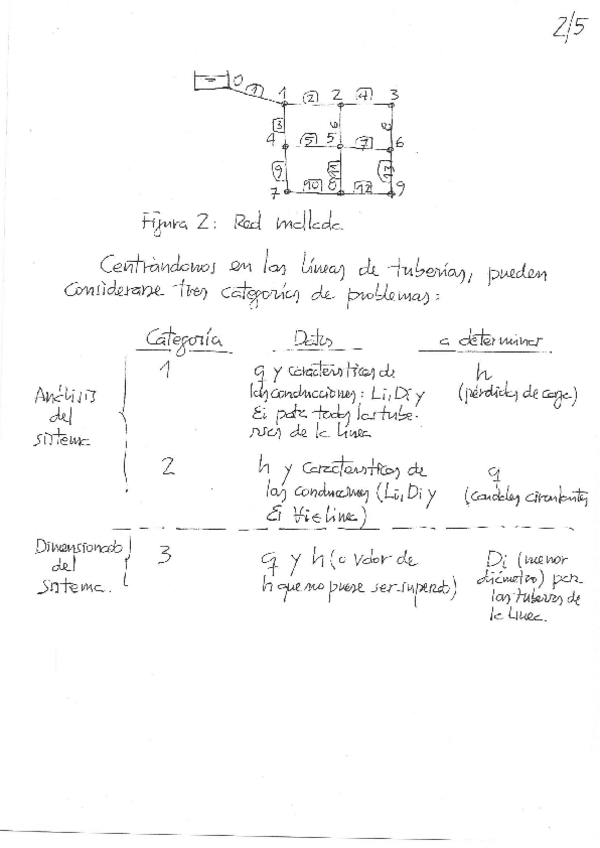 2/5
0 1
1 2 2 4 3
3 6 8
4 5 5 7 6
9 11 13
7 10 8 12 9
Figura 2: Red mallada.
Centrándonos en las líneas de tuberías, pueden
considerarse tres categorías de problemas:
Categoría Datos a determinar
1 q y características de h
Análisis las conducciones: Li, Di y (pérdidas de carga)
del Ei para todas las tube-
sistema rías de la línea
2 h y características de q
las conducciones (Li, Di y (caudales circulantes
Ei ∀i ∈ línea)
Dimensionado 3 q y h (o valor de Di (menor
del h que no puede ser superado) diámetro) para
sistema. las tuberías de
la línea.